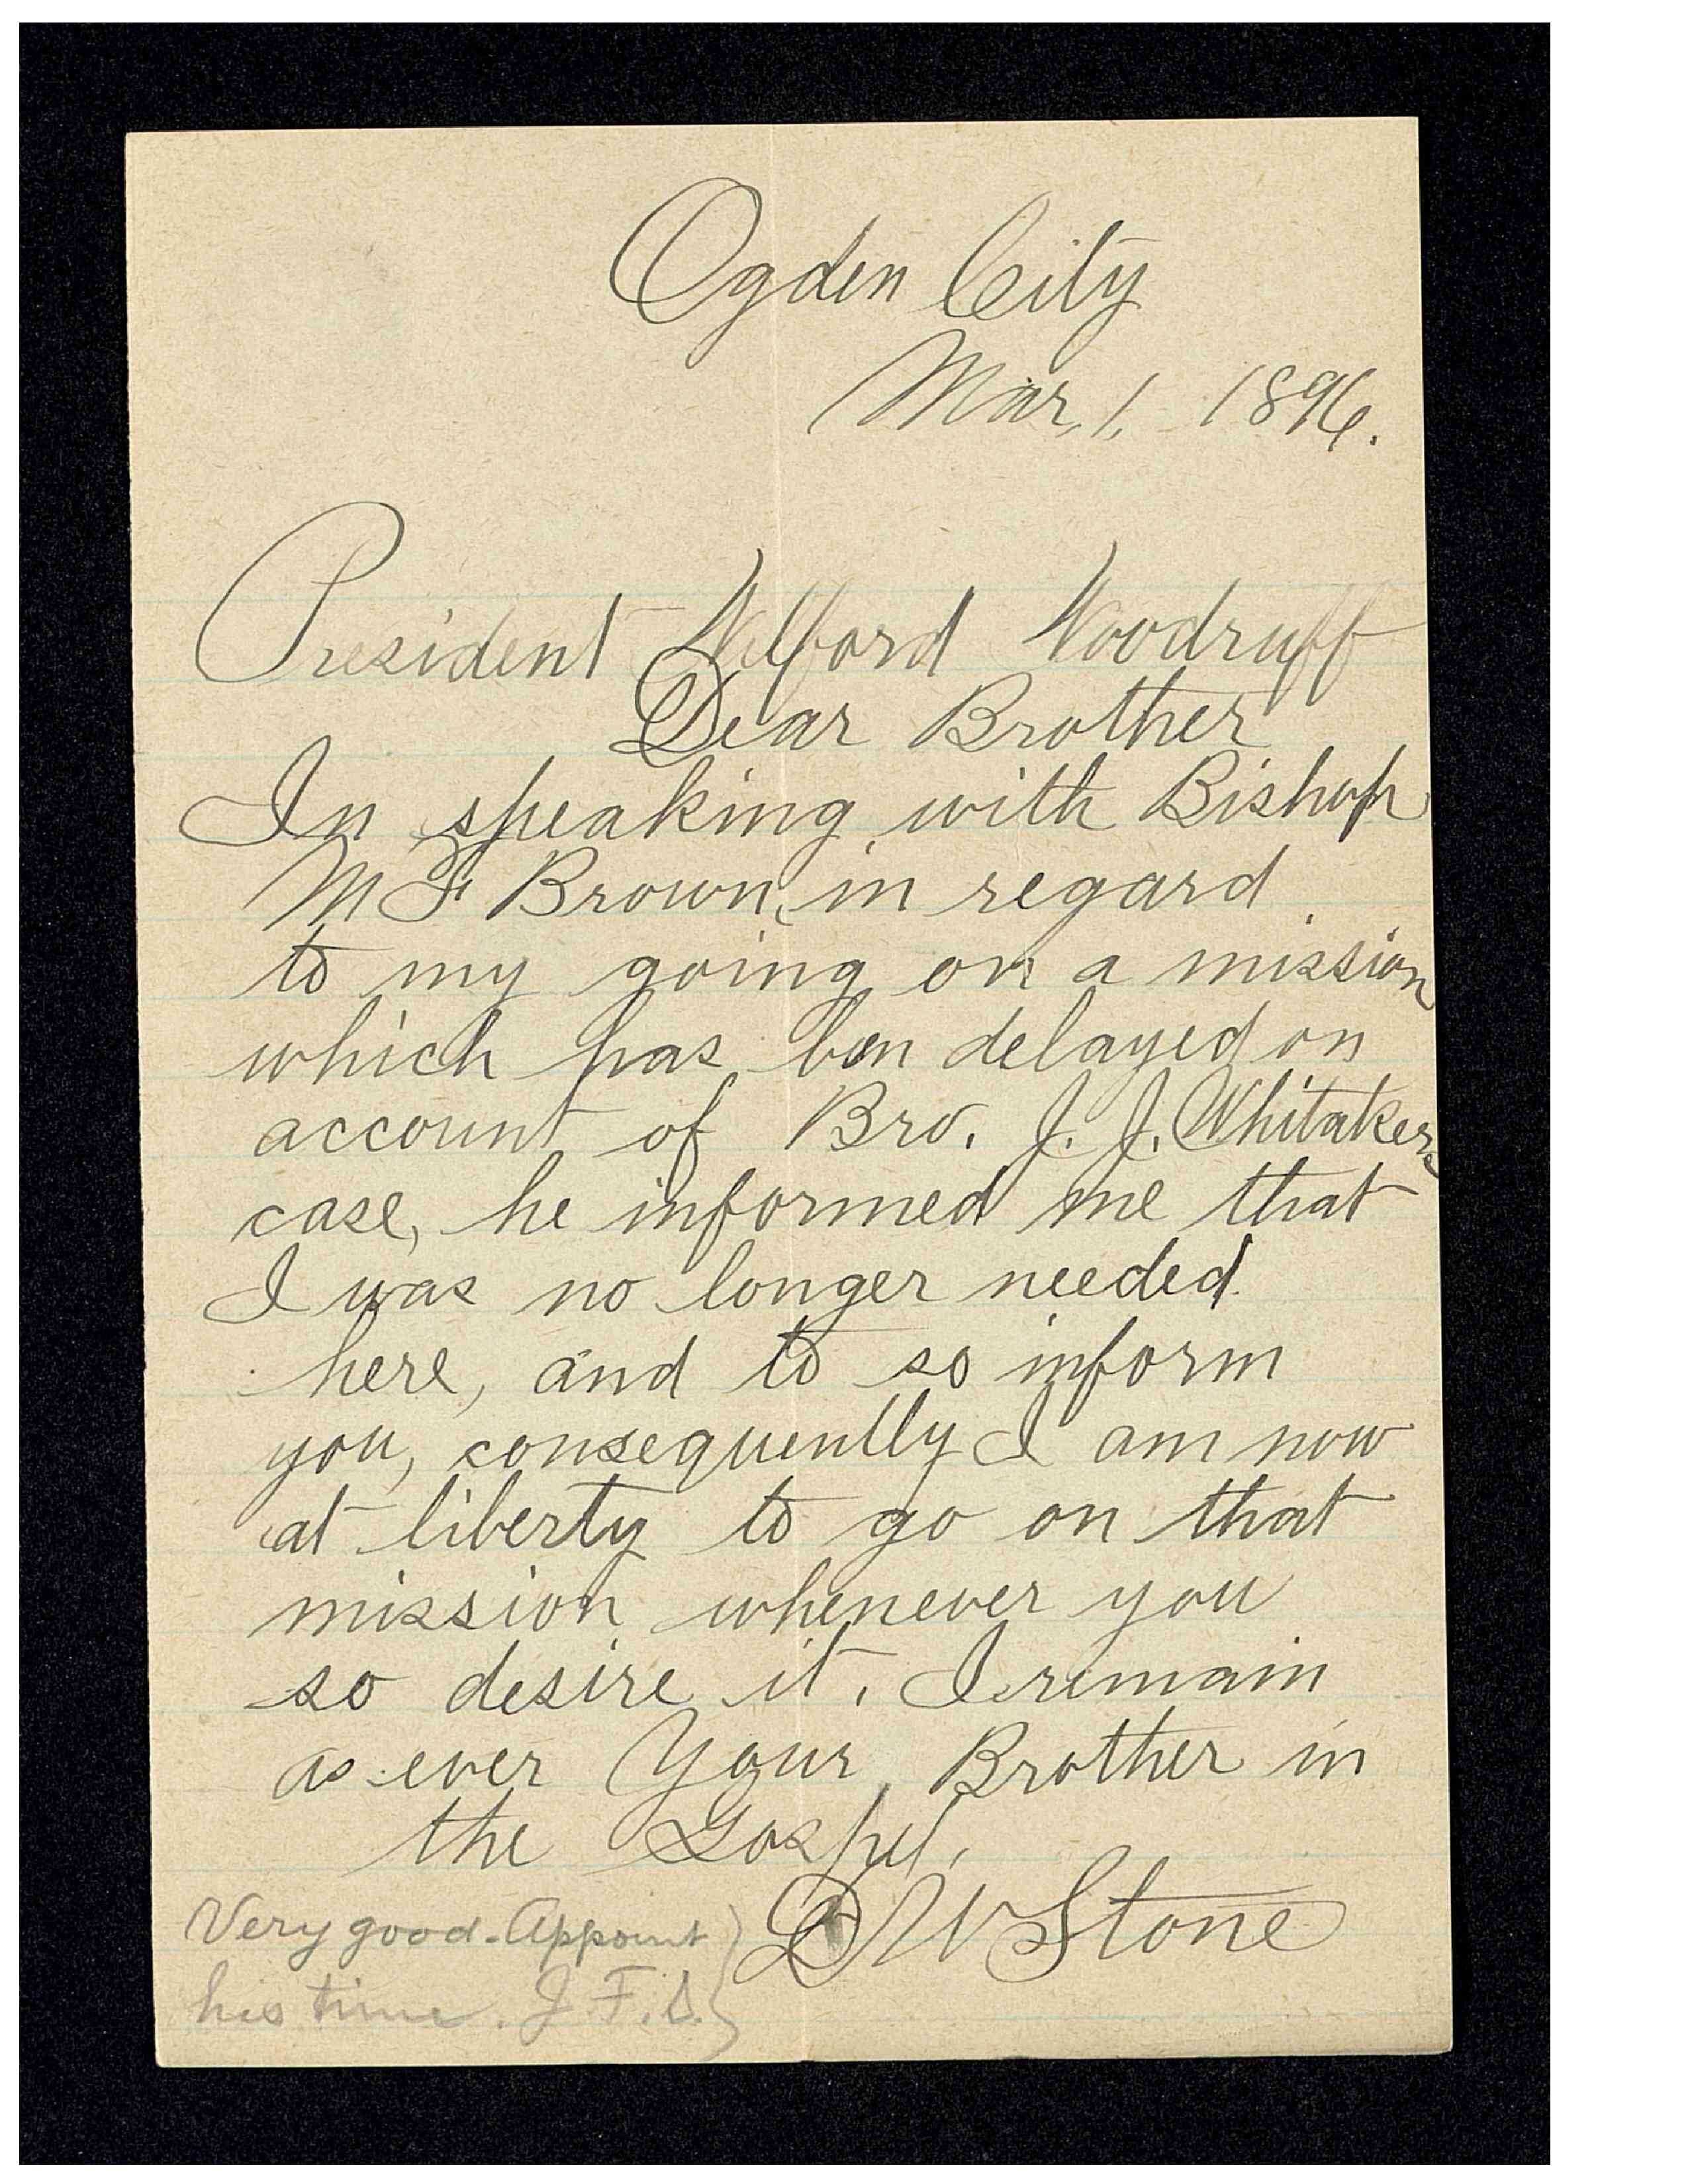 Ogden City
Mar, 1, 1896.
President Wilford Woodruff
Dear Brother
In speaking with Bishop
M F Brown, in regard
to my going on a mission
which has ben delayed on
account of Bro. J. J. Whitakers
case, he informed me that
I was no longer needed
here, and to so inform
you, consequently I am now
at liberty to go on that
mission whenever you
so desire it. I remain
as ever Your Brother in
the Gospel,
D W Stone
Very good. Appoint
his time. J. F. S.